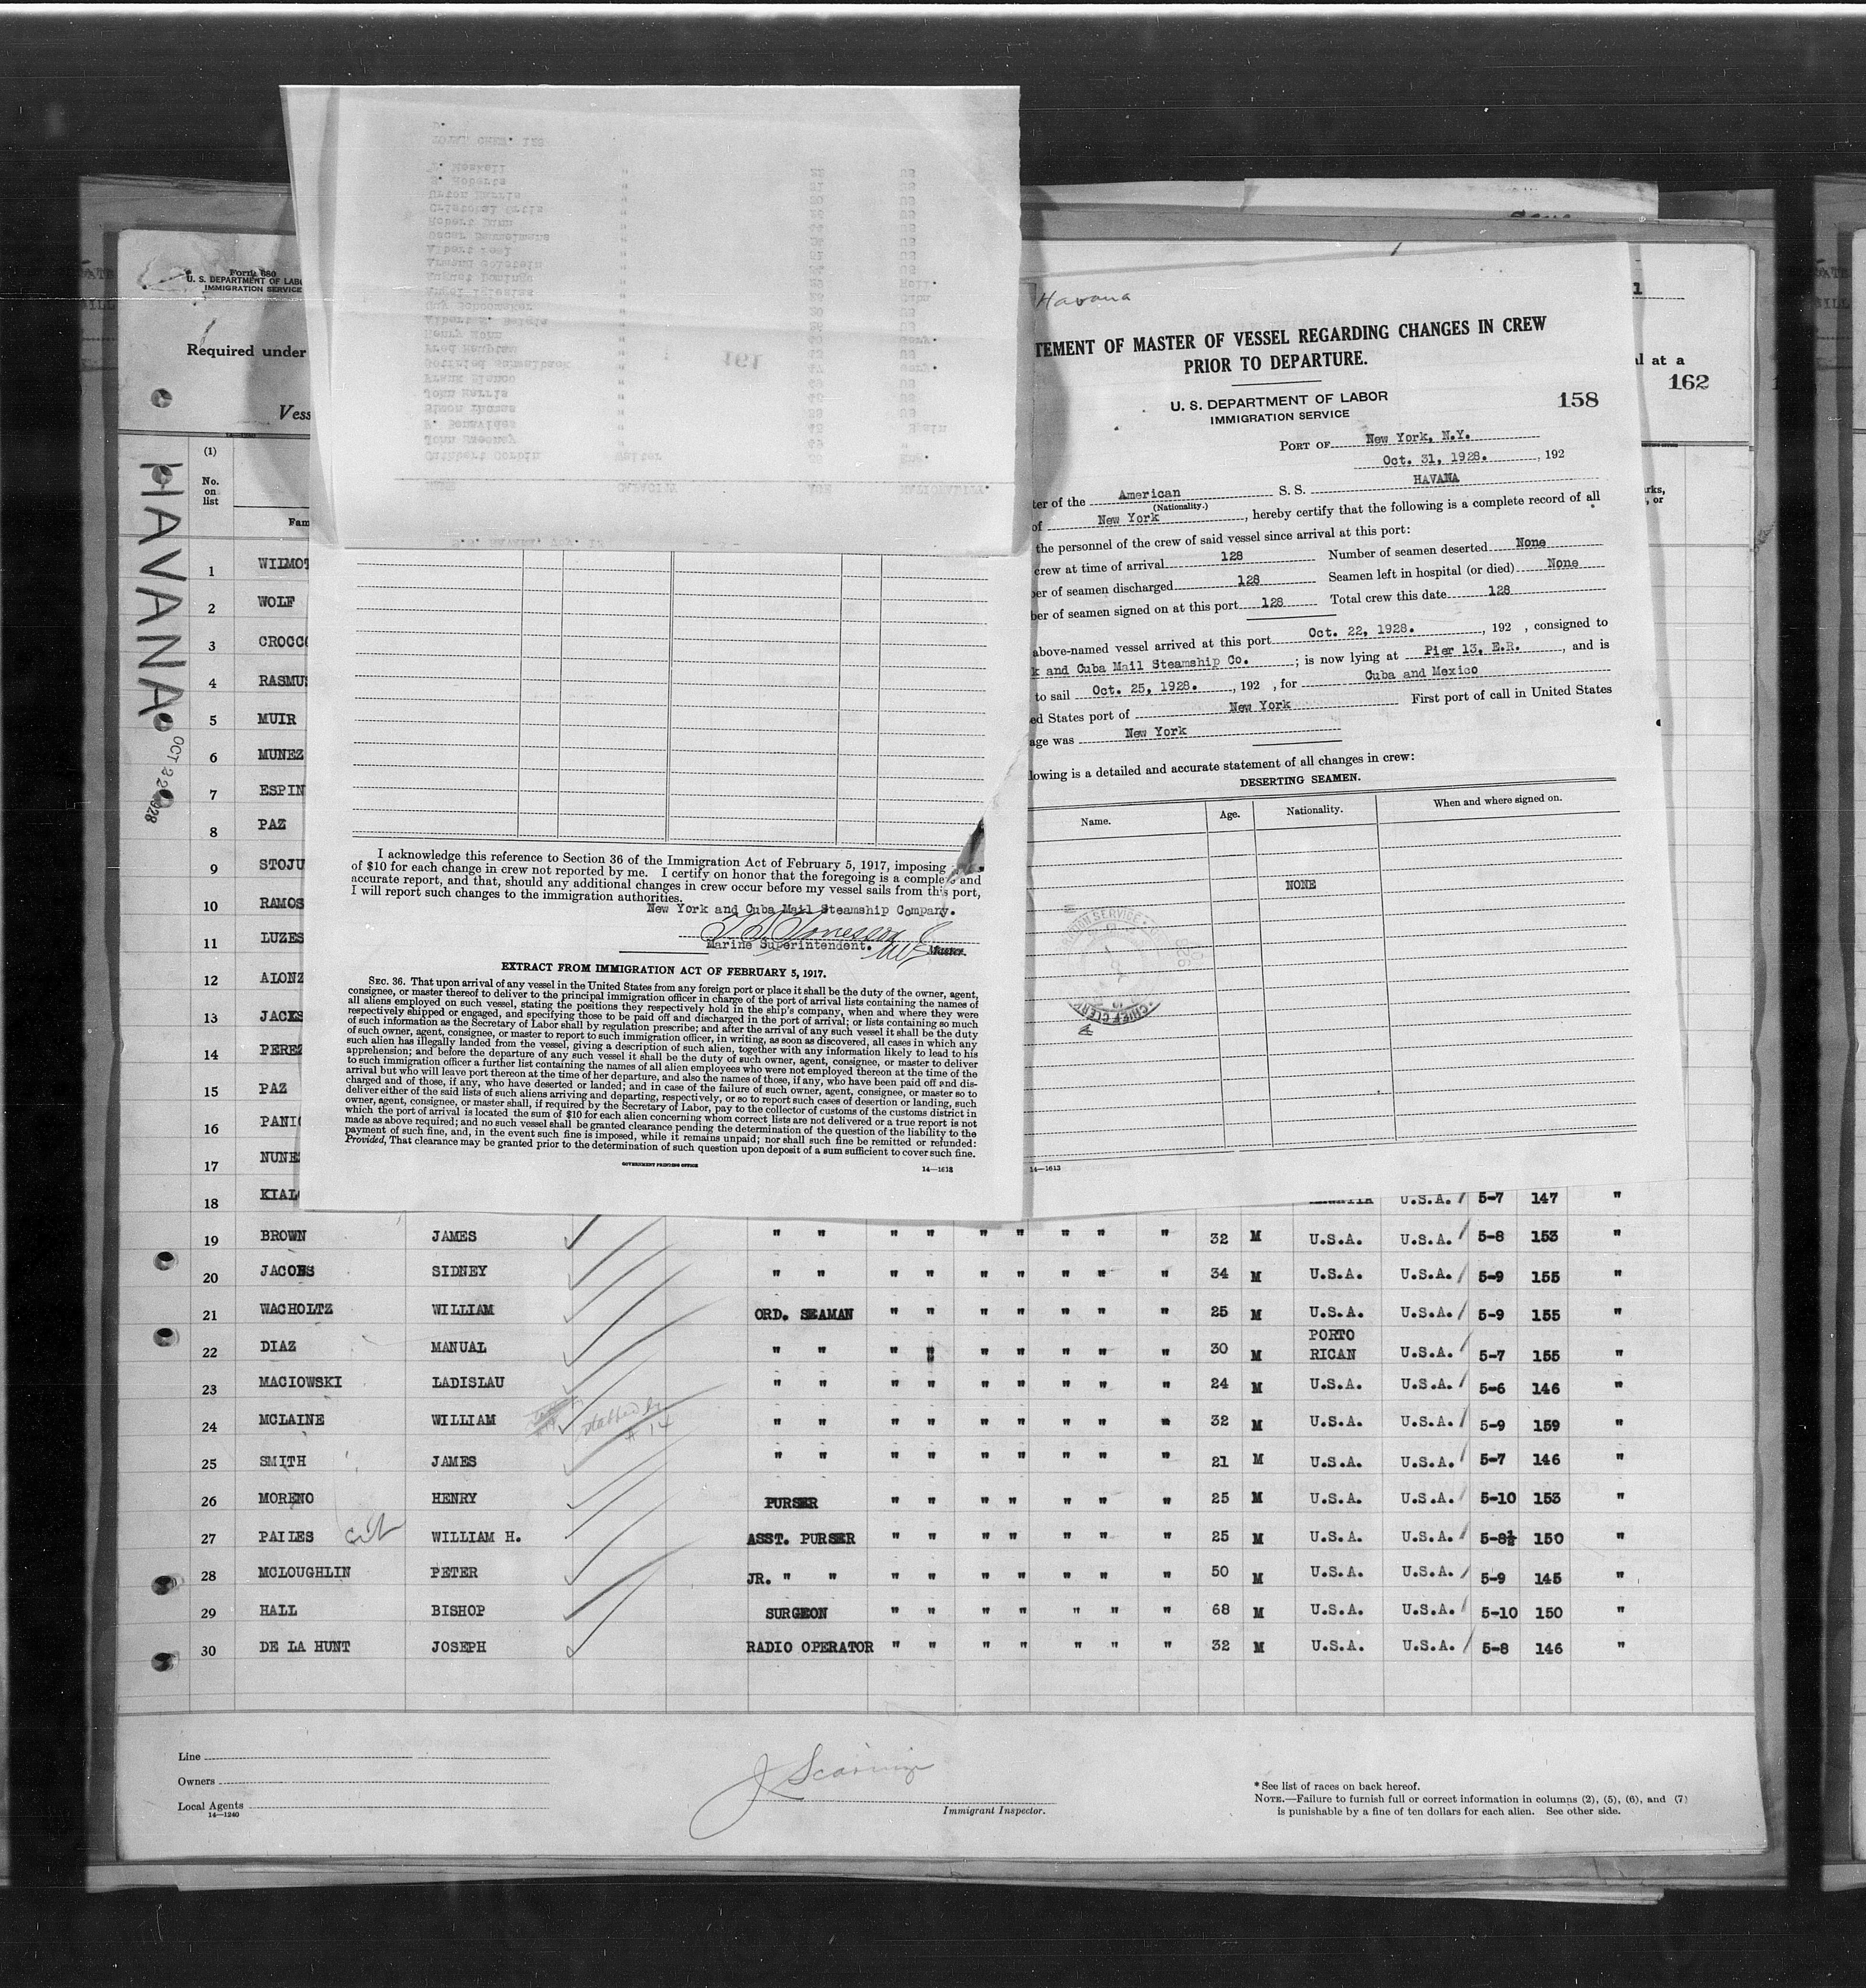 Form 680
U. S. DEPARTMENT OF LABO
IMMIGRATION SERVICE
Required under
Vess
HAVANA
OCT 22 1928
(1)
No.
on
list
Fam
1 WILMOT
2 WOLF
3 CROCCO
4 RASMUS
5 MUIR
6 MUNEZ
7 ESPIN
8 PAZ
9 STOJU
10 RAMOS
11 LUZES
12 ALONZ
13 JACKS
14 PEREZ
15 PAZ
16 PANI
17 NUNE
18 KIAL
191
I acknowledge this reference to Section 36 of the Immigration Act of February 5, 1917, imposing
of $10 for each change in crew not reported by me. I certify on honor that the foregoing is a complete and
accurate report, and that, should any additional changes in crew occur before my vessel sails from this port,
I will report such changes to the immigration authorities.
New York and Cuba Mail Steamship Company.
Marine Superintendent. Master.
EXTRACT FROM IMMIGRATION ACT OF FEBRUARY 5, 1917.
SEC. 36. That upon arrival of any vessel in the United States from any foreign port or place it shall be the duty of the owner, agent,
consignee, or master thereof to deliver to the principal immigration officer in charge of the port of arrival lists containing the names of
all aliens employed on such vessel, stating the positions they respectively hold in the ship's company, when and where they were
respectively shipped or engaged, and specifying those to be paid off and discharged in the port of arrival; or lists containing so much
of such information as the Secretary of Labor shall by regulation prescribe; and after the arrival of any such vessel it shall be the duty
of such owner, agent, consignee, or master to report to such immigration officer, in writing, as soon as discovered, all cases in which any
such alien has illegally landed from the vessel, giving a description of such alien, together with any information likely to lead to his
apprehension; and before the departure of any such vessel it shall be the duty of such owner, agent, consignee, or master to deliver
to such immigration officer a further list containing the names of all alien employees who were not employed thereon at the time of the
arrival but who will leave port thereon at the time of her departure, and also the names of those, if any, who have been paid off and dis-
charged and of those, if any, who have deserted or landed; and in case of the failure of such owner, agent, consignee, or master so to
deliver either of the said lists of such aliens arriving and departing, respectively, or so to report such cases of desertion or landing, such
owner, agent, consignee, or master shall, if required by the Secretary of Labor, pay to the collector of customs of the customs district in
which the port of arrival is located the sum of $10 for each alien concerning whom correct lists are not delivered or a true report is not
made as above required; and no such vessel shall be granted clearance pending the determination of the question of the liability to the
payment of such fine, and, in the event such fine is imposed, while it remains unpaid; nor shall such fine be remitted or refunded:
Provided, That clearance may be granted prior to the determination of such question upon deposit of a sum sufficient to cover such fine.
GOVERNMENT PRINTING OFFICE 14—1613
Havana
TEMENT OF MASTER OF VESSEL REGARDING CHANGES IN CREW
PRIOR TO DEPARTURE.
U. S. DEPARTMENT OF LABOR
IMMIGRATION SERVICE
158
PORT OF New York, N.Y.
Oct. 31, 1928. , 192
ter of the American S. S. HAVANA
(Nationality.)
of New York , hereby certify that the following is a complete record of all
the personnel of the crew of said vessel since arrival at this port:
crew at time of arrival 128 Number of seamen deserted None
ber of seamen discharged 128 Seamen left in hospital (or died) None
ber of seamen signed on at this port 128 Total crew this date 128
above-named vessel arrived at this port Oct. 22, 1928. , 192 , consigned to
k and Cuba Mail Steamship Co. ; is now lying at Pier 13, E.R. , and is
to sail Oct. 25, 1928. , 192 , for Cuba and Mexico
ed States port of New York First port of call in United States
age was New York
lowing is a detailed and accurate statement of all changes in crew:
DESERTING SEAMEN.
Name. Age. Nationality. When and where signed on.
NONE
CHIEF CLERK
14—1613
1
l at a
162
rks,
, or
U.S.A. 5-7 147 "
19 BROWN JAMES " " " " " " " " " 32 M U.S.A. U.S.A. 5-8 153 "
20 JACOBS SIDNEY " " " " " " " " " 34 M U.S.A. U.S.A. 5-9 155 "
21 WACHOLTZ WILLIAM ORD. SEAMAN " " " " " " " 25 M U.S.A. U.S.A. 5-9 155 "
22 DIAZ MANUAL " " " " " " " " " 30 M PORTO RICAN U.S.A. 5-7 155 "
23 MACIOWSKI LADISLAU " " " " " " " " " 24 M U.S.A. U.S.A. 5-6 146 "
24 MCLAINE WILLIAM stabbed by # 14 " " " " " " " " " 32 M U.S.A. U.S.A. 5-9 159 "
25 SMITH JAMES " " " " " " " " " 21 M U.S.A. U.S.A. 5-7 146 "
26 MORENO HENRY PURSER " " " " " " " 25 M U.S.A. U.S.A. 5-10 153 "
27 PAILES WILLIAM H. ASST. PURSER " " " " " " " 25 M U.S.A. U.S.A. 5-8½ 150 "
28 MCLOUGHLIN PETER JR. " " " " " " " " " 50 M U.S.A. U.S.A. 5-9 145 "
29 HALL BISHOP SURGEON " " " " " " " 68 M U.S.A. U.S.A. 5-10 150 "
30 DE LA HUNT JOSEPH RADIO OPERATOR " " " " " " " 32 M U.S.A. U.S.A. 5-8 146 "
Line
Owners
Local Agents
14—1240
Immigrant Inspector.
* See list of races on back hereof.
NOTE.—Failure to furnish full or correct information in columns (2), (5), (6), and (7)
is punishable by a fine of ten dollars for each alien. See other side.